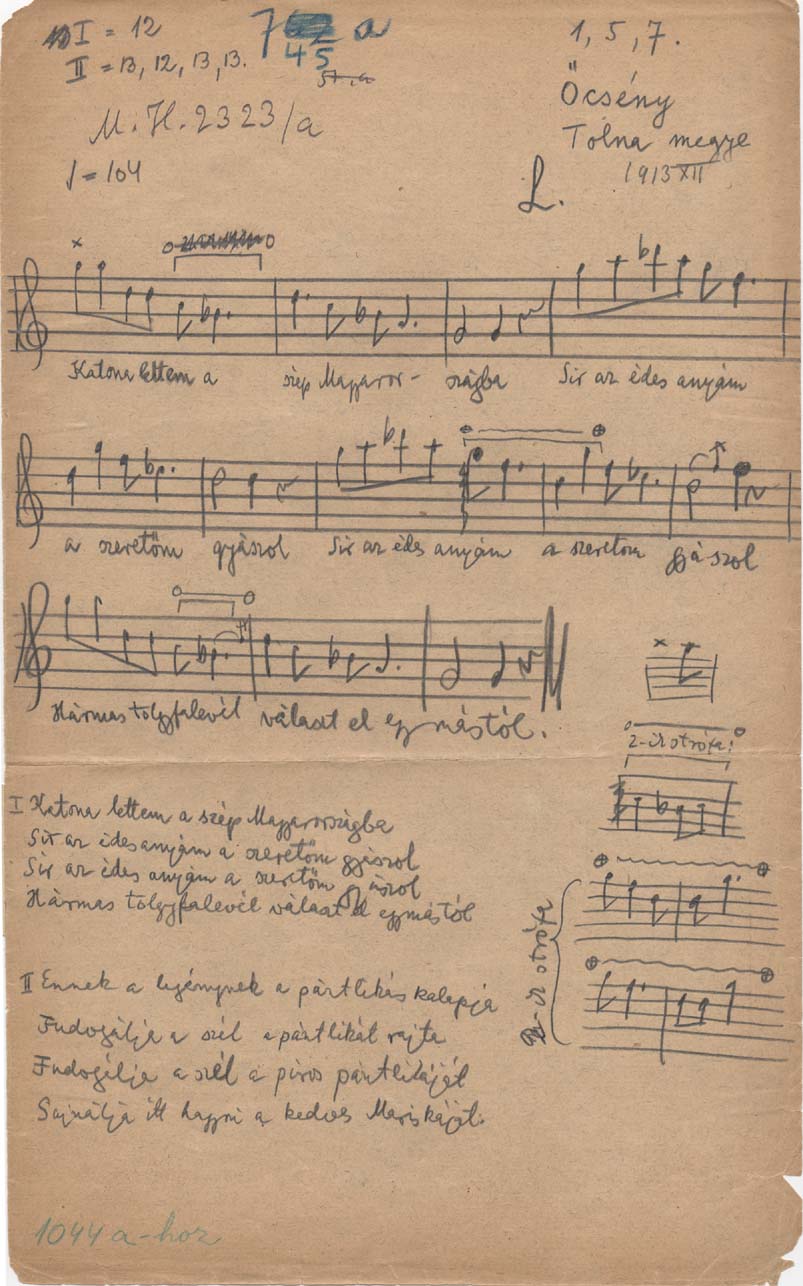 I = 12
II = 13, 12, 13, 13.
7 a
45
1, 5, 7.
Őcsény
Tolna megye
1913 XII
M. H. 2323/a
= 104
L.
Katona lettem a szép Magyaror- szágba Sir az édes anyám
a szeretőm gyászol Sir az édes anyám a szeretőm gyászol
Hármas tölgyfalevél választ el egymástól.
2-ik strófa:
I Katona lettem a szép Magyarországba
Sir az édes anyám a szeretőm gyászol
Sir az édes anyám a szeretőm gyászol
Hármas tölgyfalevél választ el egymástól
-ik strófa
II Ennek a legénynek a pántlikás kalapja
Fudogálja a szél a pántlikát rajta
Fudogálja a szél a piros pántlikáját
Sajnálja itt hagyni a kedves Mariskáját.
1044 a-hoz